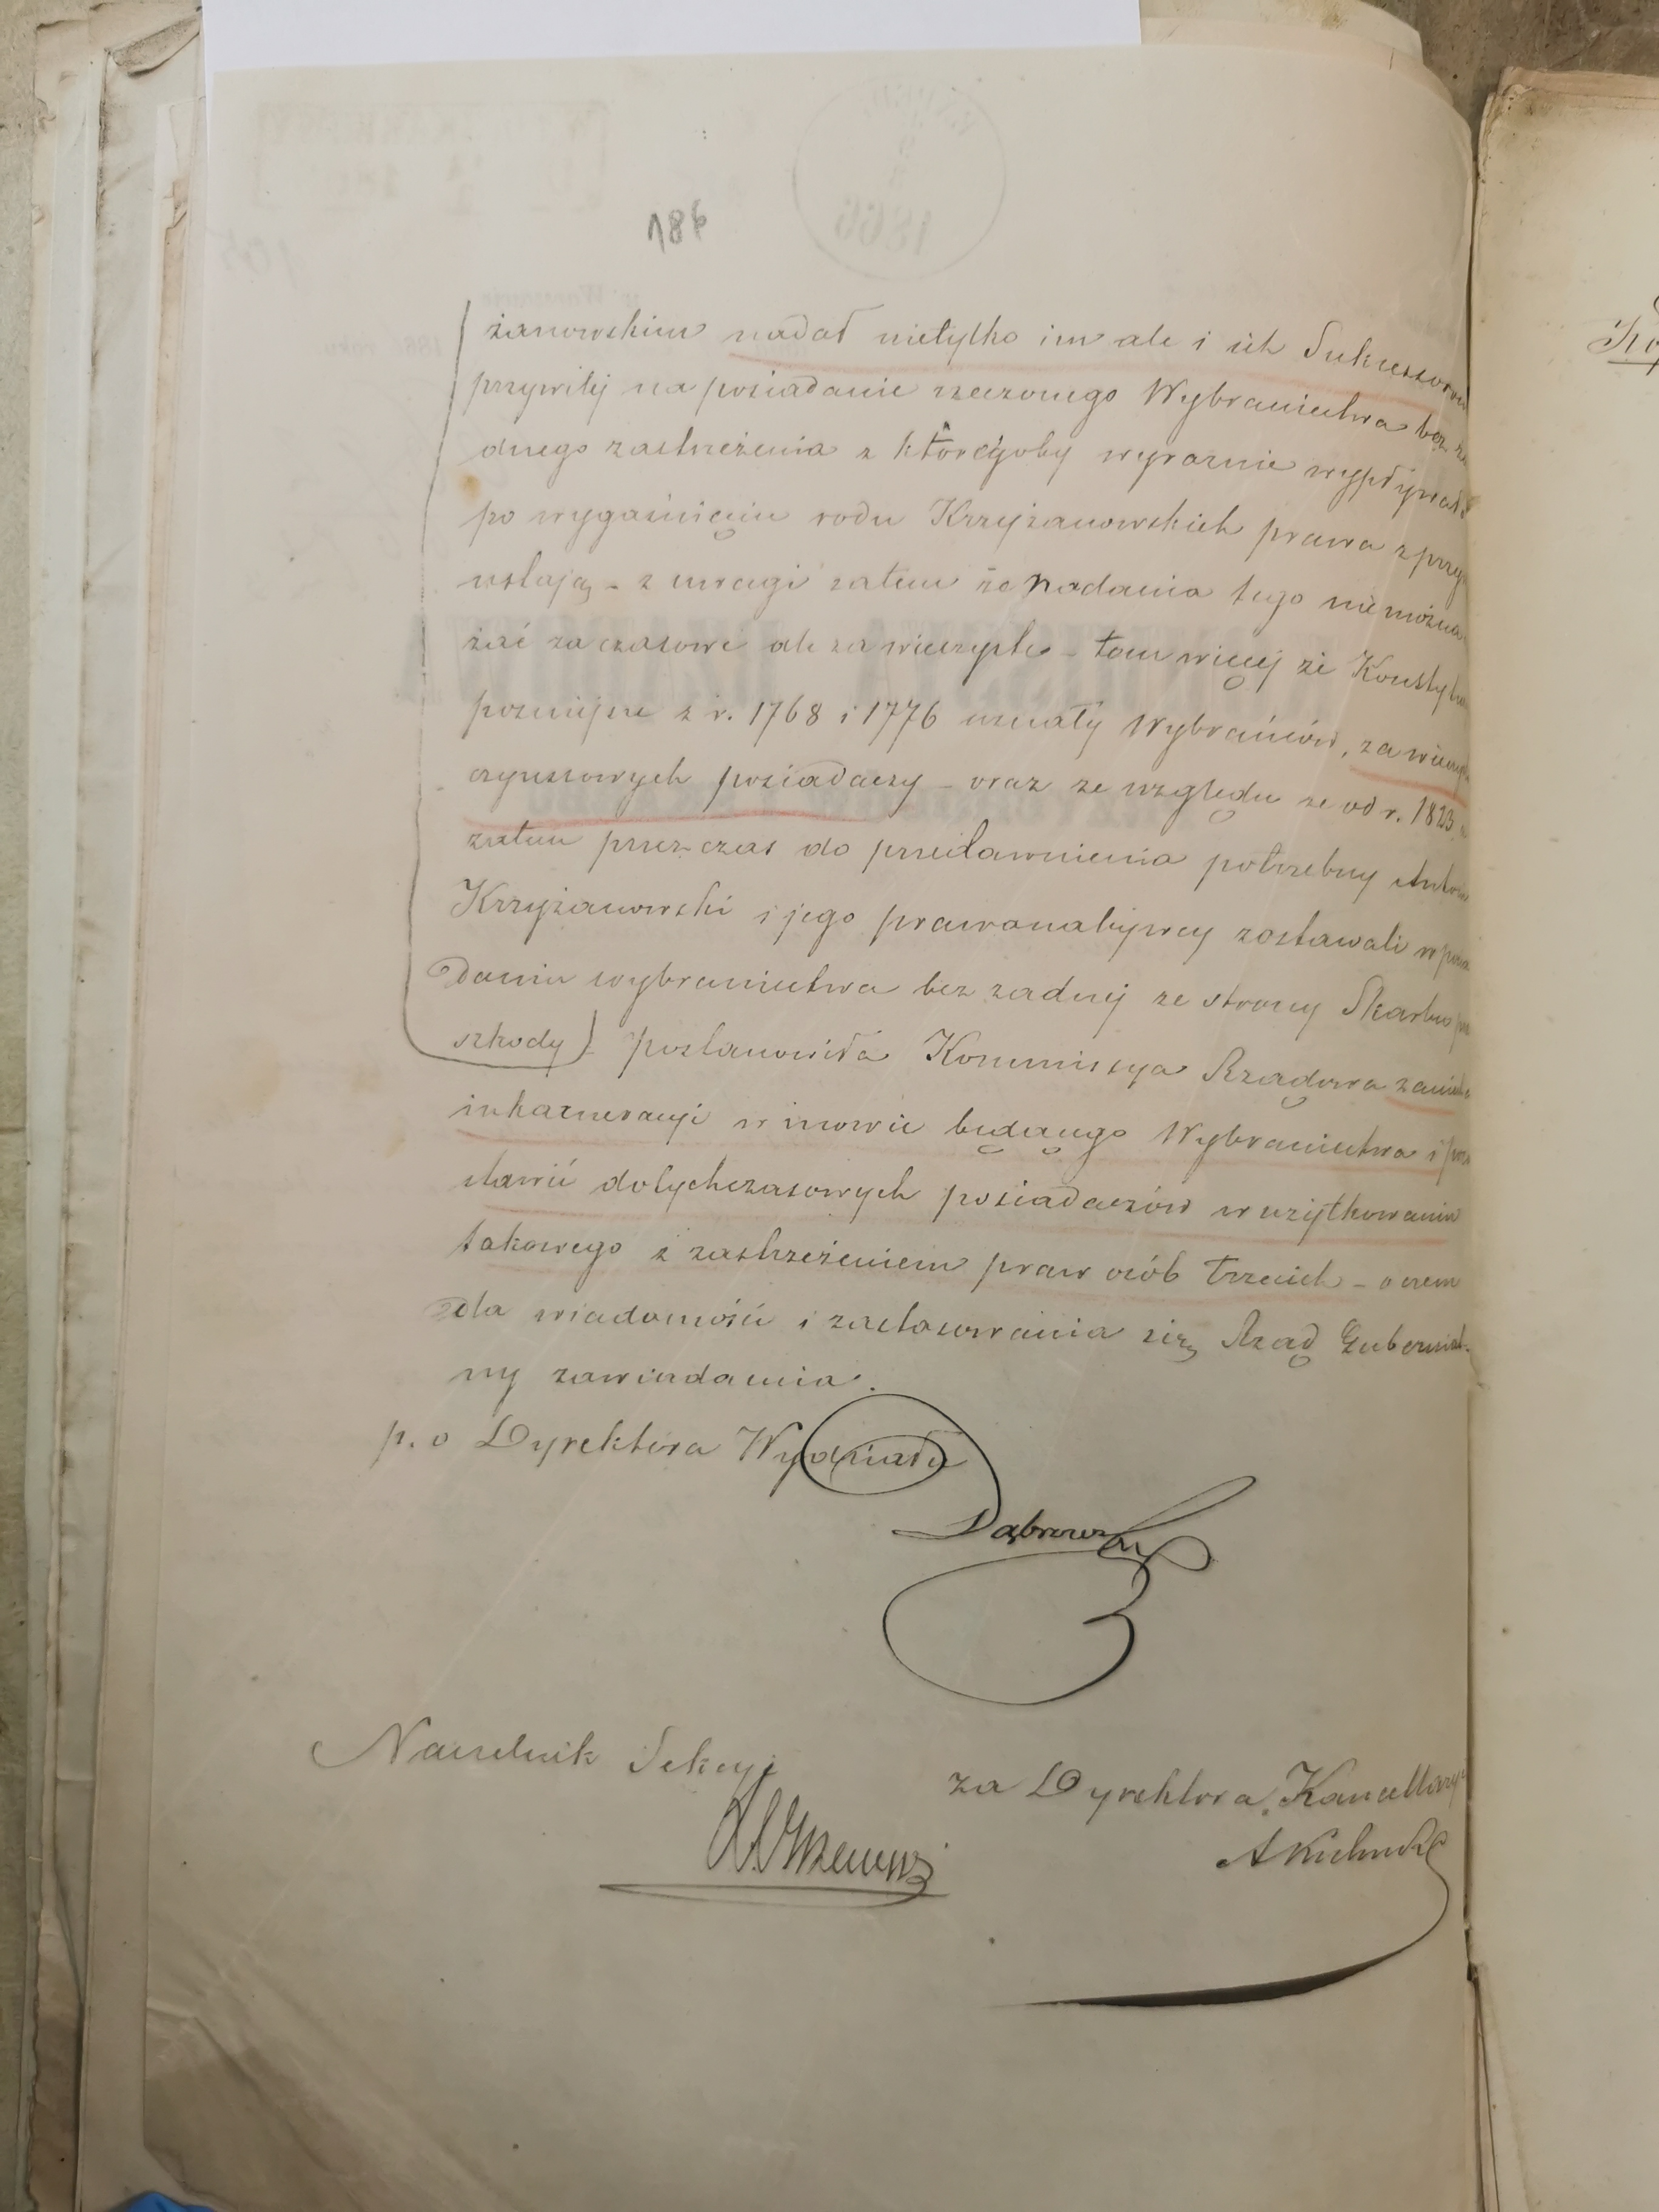 186
żanowskim nadał nietylko im ale i ich Sukcessorom
przywilej na posiadanie rzeczonego Wybraniectwa bez ża
dnego zastrzeżenia z któregoby wyraźnie wypływało
po wygaśnięciu rodu Krzyżanowskich prawa z przy
ustają – z uwagi zatem że nadania tego nie można
żać za czasowe ale za wieczyste – tem więcej że Konstytu
pozniejsze z r. 1768 i 1776 uznały Wybrańców, za wieczy
czynszowych posiadaczy – oraz ze względu że od r. 1823 a
zatem przez czas do przedawnienia potrzebny Anton
Krzyżanowski i jego prawonabywcy zostawali w posia
daniu wybraniectwa bez żadnej ze strony Skarbu
szkody) – postanowiła Kommissya Rządowa zaniecha
inkameracyi w mowie będącego Wybraniectwa i pozo
stawić dotychczasowych posiadaczów w użytkowaniu
takowego z zastrzeżeniem praw osób trzecich – o czem
dla wiadomości i zastosowania się, Rząd Gubernial-
ny zawiadamia.
p. o Dyrektora Wydziału
Dąbrowski
Naczelnik Sekcyi
za Dyrektora Kancellaryi
1866